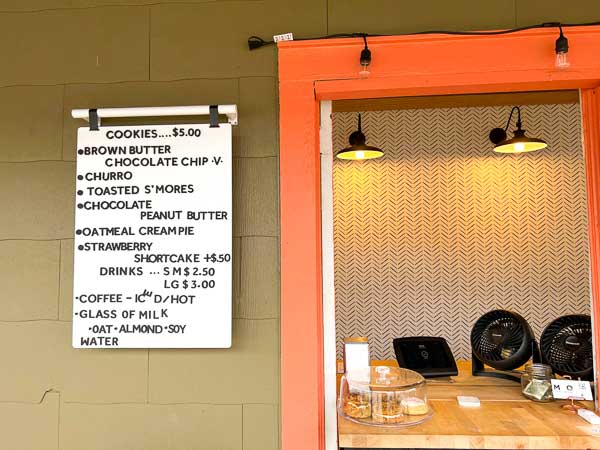 COOKIES....$5.00
•BROWN BUTTER
CHOCOLATE CHIP •V•
•CHURRO
• TOASTED S'MORES
•CHOCOLATE
PEANUT BUTTER
•OATMEAL CREAM PIE
•STRAWBERRY
SHORTCAKE +$.50
DRINKS ... SM $2.50
LG $3.00
•COFFEE - ICED/HOT
•GLASS OF MILK
•OAT •ALMOND •SOY
WATER